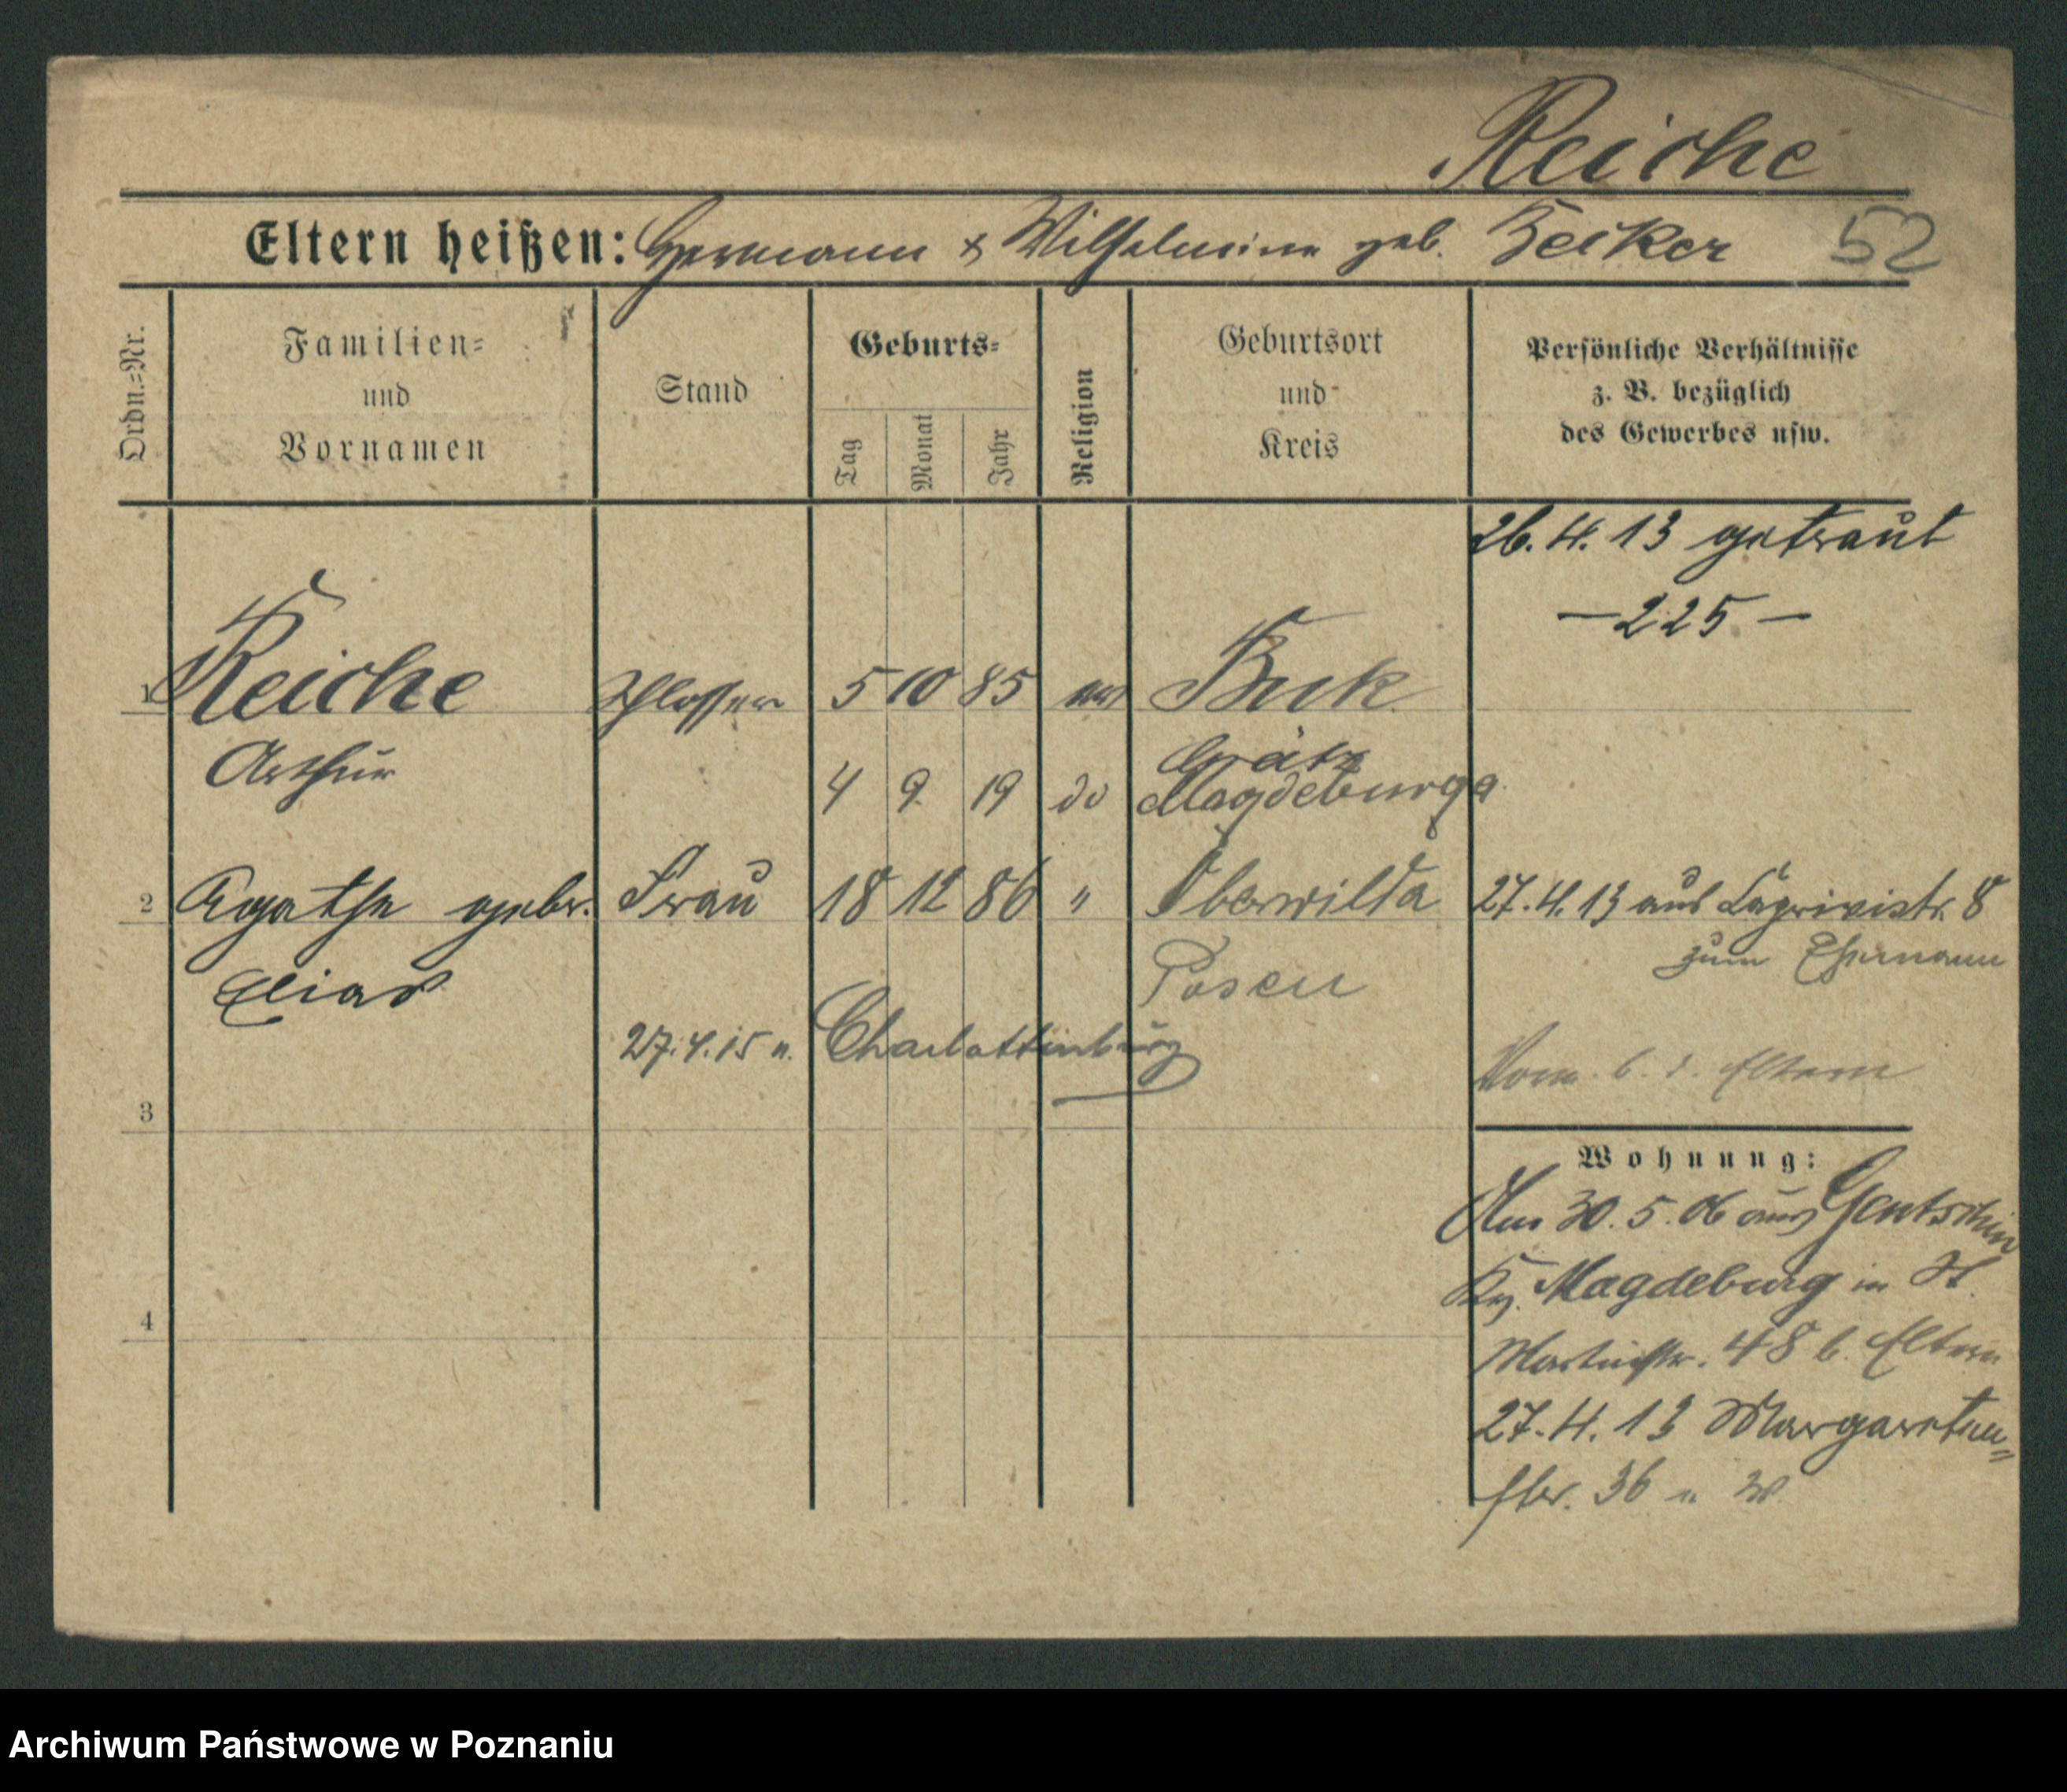 Reiche
Eltern heißen: Hermann & Wilhelmine geb. Zeiker 52
Ordn.=Nr.
Familien=
und
Vornamen
Stand
Geburts=
Tag
Monat
Jahr
Religion
Geburtsort
und
Kreis
Persönliche Verhältnisse
z. B. bezüglich
des Gewerbes usw.
26. 4. 13 getraut
— 225 —
1 Reiche Schlosser 5 10 85 Buk
Arthur
Grätz
4 9. 19 do Magdeburg
2 Agathe gebr. Frau 18 12 86 " Oberwilda 27. 4. 13 aus 8
zum Ehemann
Elias Posen
27. 4. 15 n. Charlottenburg
b. d. Eltern
3
Wohnung:
Am 30. 5. 06 aus Genthin
Magdeburg in St.
4
Martinstr. 48 b. Eltern
27. 4. 13 Margareten=
str. 36 n W
Archiwum Państwowe w Poznaniu